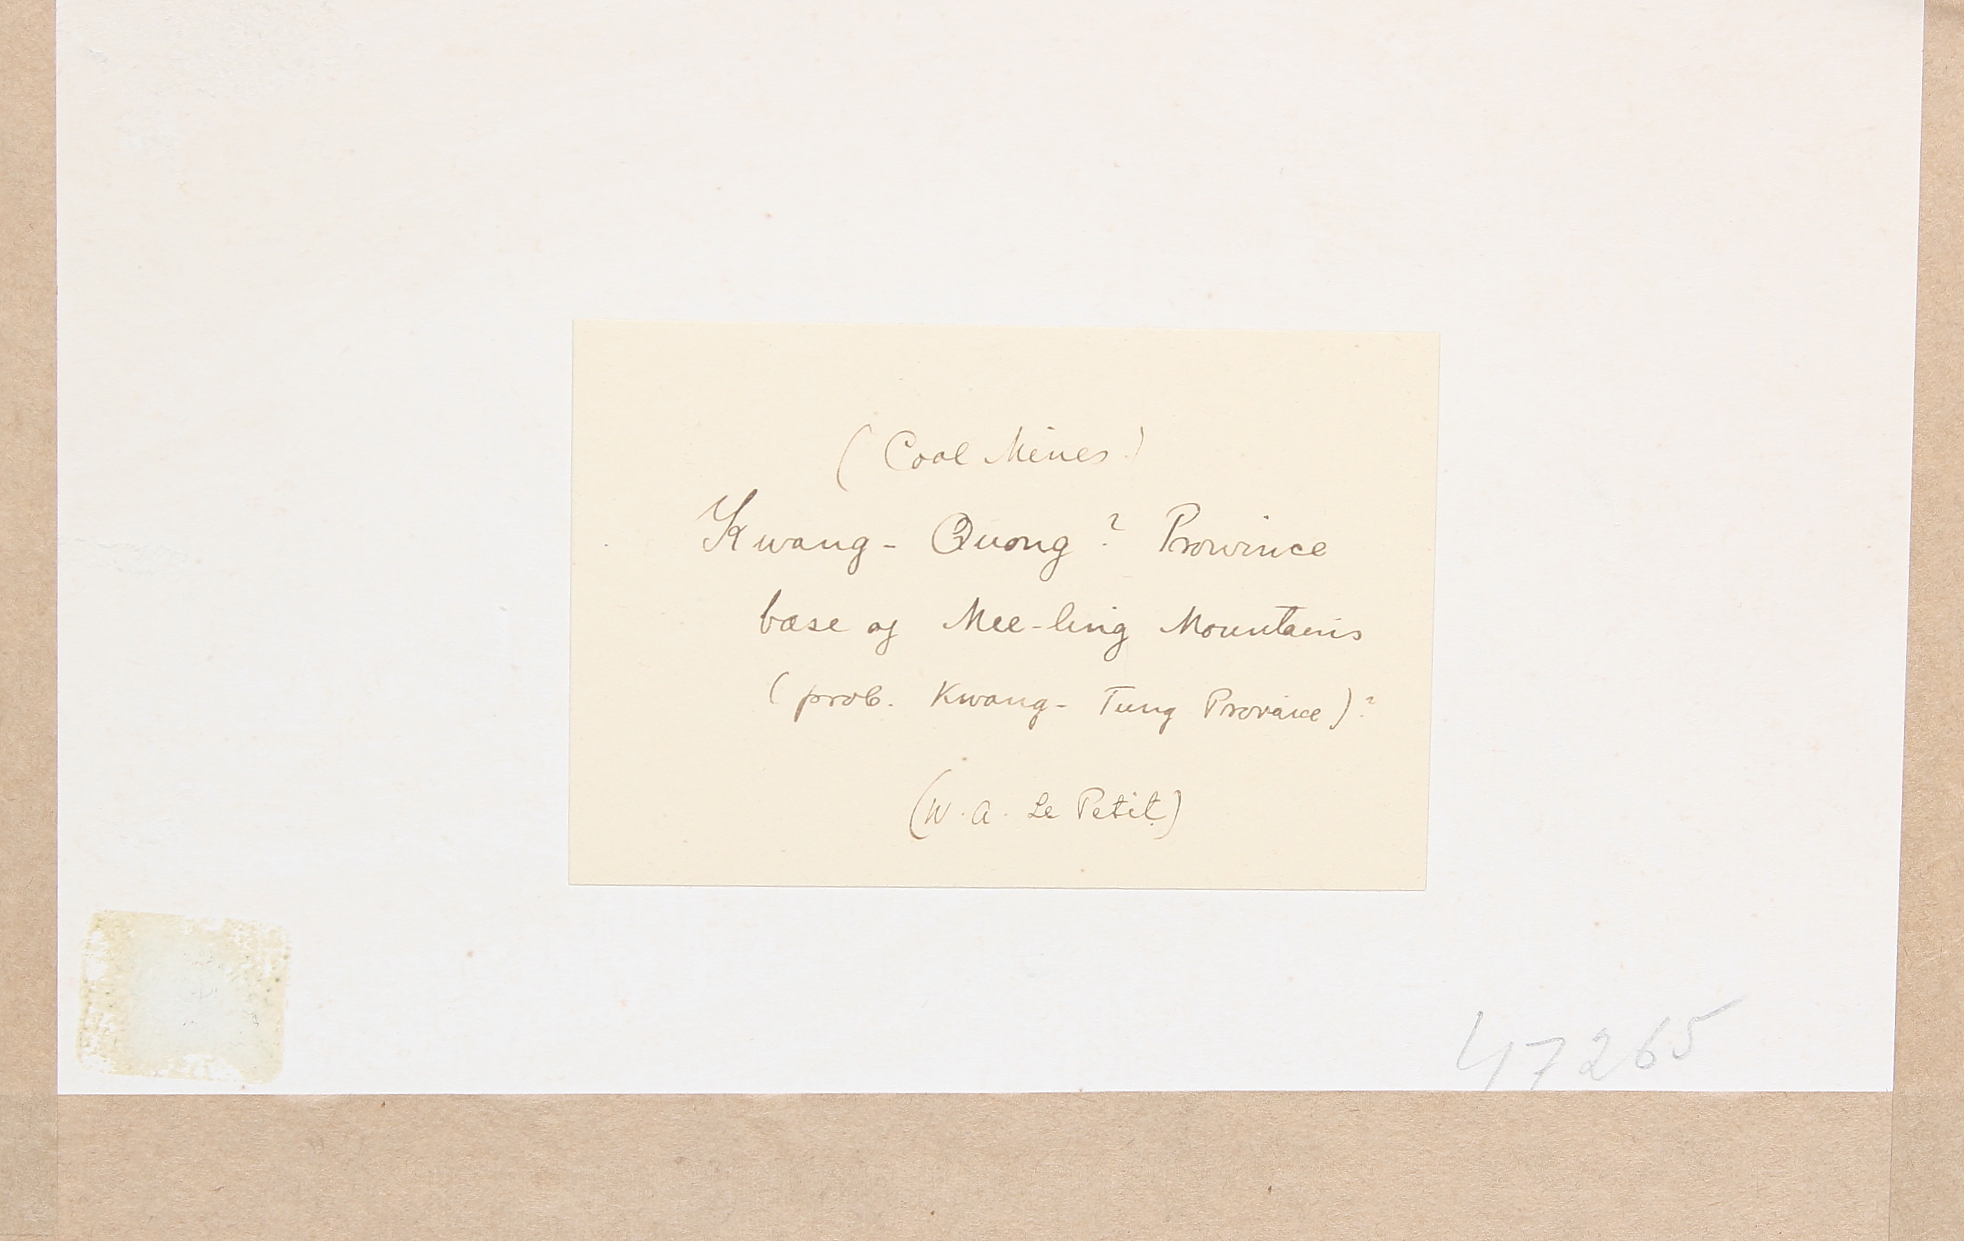 (Coal Mines)
Kwang - Quong? Province
base of Mee-ling Mountains
(prob. Kwang - Tung Province)?
(W. A. Le Petit)
47265